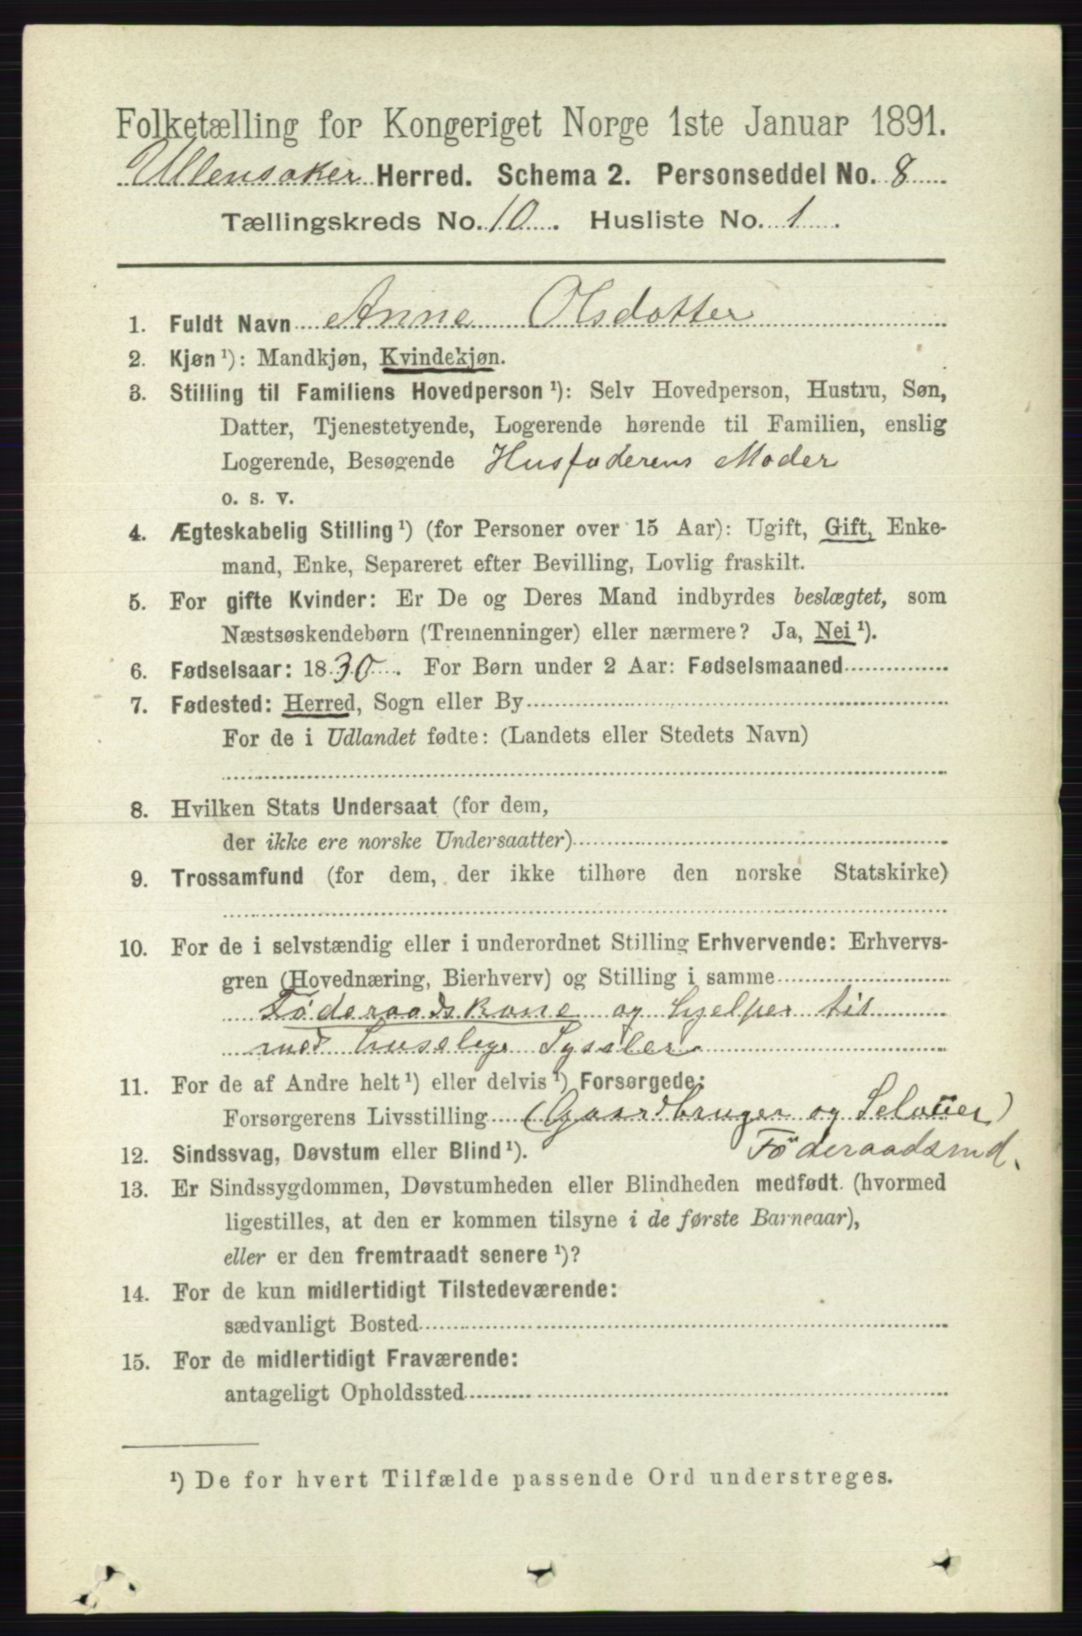 Folketælling for Kongeriget Norge 1ste Januar 1891.
Ullensaker Herred. Schema 2. Personseddel No. 8
Tællingskreds No. 10. Husliste No. 1.
1. Fuldt Navn Anne Olsdotter
2. Kjøn ¹): Mandkjøn, Kvindekjøn.
3. Stilling til Familiens Hovedperson ¹): Selv Hovedperson, Hustru, Søn,
Datter, Tjenestetyende, Logerende hørende til Familien, enslig
Logerende, Besøgende Husfaderens Moder
o. s. v.
4. Ægteskabelig Stilling ¹) (for Personer over 15 Aar): Ugift, Gift, Enke-
mand, Enke, Separeret efter Bevilling, Lovlig fraskilt.
5. For gifte Kvinder: Er De og Deres Mand indbyrdes beslægtet, som
Næstsøskendebørn (Tremenninger) eller nærmere? Ja, Nei ¹).
6. Fødselsaar: 1830. For Børn under 2 Aar: Fødselsmaaned
7. Fødested: Herred, Sogn eller By
For de i Udlandet fødte: (Landets eller Stedets Navn)
8. Hvilken Stats Undersaat (for dem,
der ikke ere norske Undersaatter)
9. Trossamfund (for dem, der ikke tilhøre den norske Statskirke)
10. For de i selvstændig eller i underordnet Stilling Erhvervende: Erhvervs-
gren (Hovednæring, Bierhverv) og Stilling i samme
Föderaadskone og hjelper til
med huslige Sysler
11. For de af Andre helt ¹) eller delvis ¹) Forsørgede:
Forsørgerens Livsstilling (Gaardbruger og Seloeier)
12. Sindssvag, Døvstum eller Blind ¹). Föderaadsmd.
13. Er Sindssygdommen, Døvstumheden eller Blindheden medfødt (hvormed
ligestilles, at den er kommen tilsyne i de første Barneaar),
eller er den fremtraadt senere ¹)?
14. For de kun midlertidigt Tilstedeværende:
sædvanligt Bosted
15. For de midlertidigt Fraværende:
antageligt Opholdssted
¹) De for hvert Tilfælde passende Ord understreges.